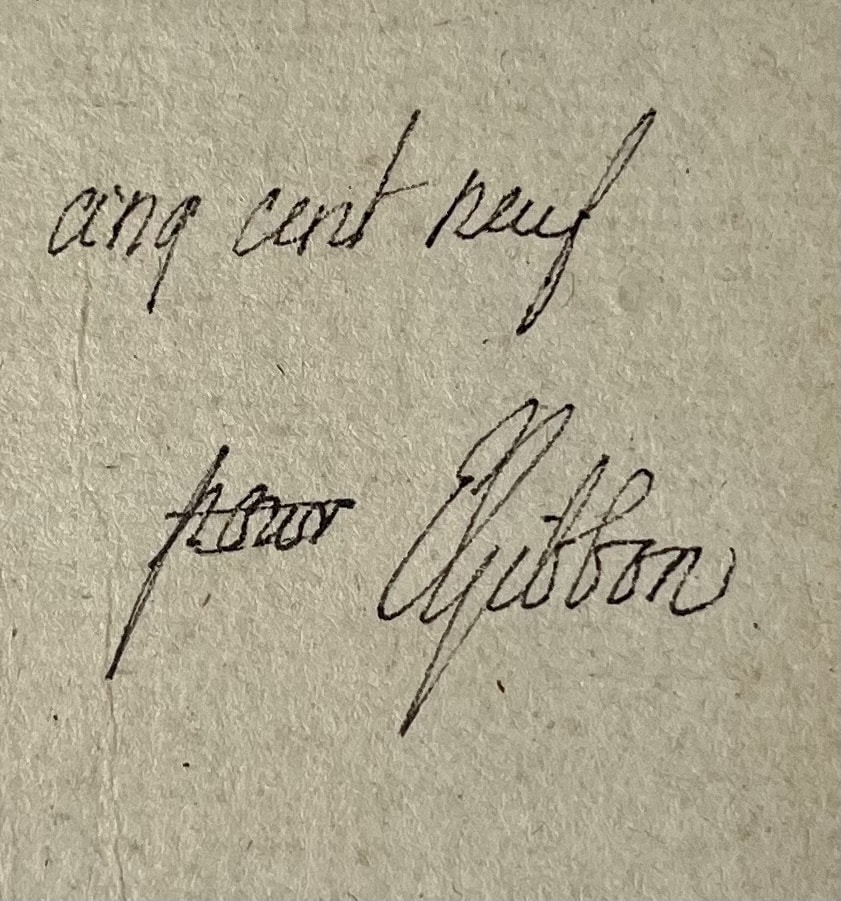 cinq cent neuf
pour EGibbon